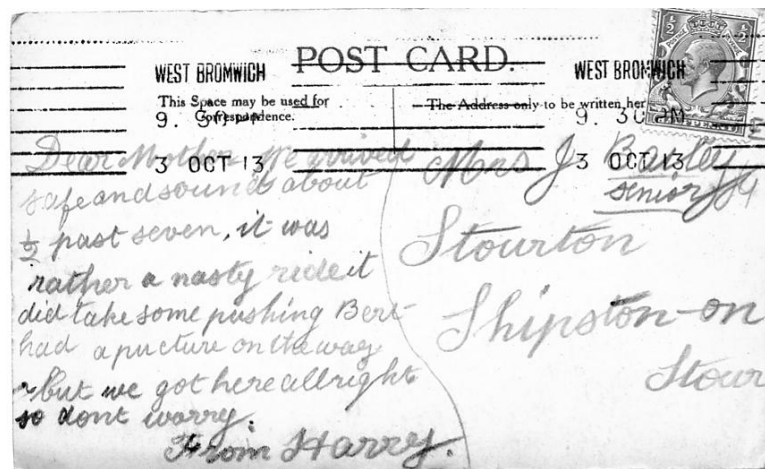 POST CARD.
WEST BROMWICH
WEST BROMWICH
This Space may be used for
Correspondence.
The Address only to be written
9. 30
9. 30 PM
3 OCT 13
3 OCT 13
Dear Mother We arrived
safe and sound about
½ past seven, it was
rather a nasty ride it
did take some pushing Bert
had a pucture on the way
but we got here allright
so dont worry.
From Harry.
Mrs J
senior
Stourton
Shipston-on
Stour